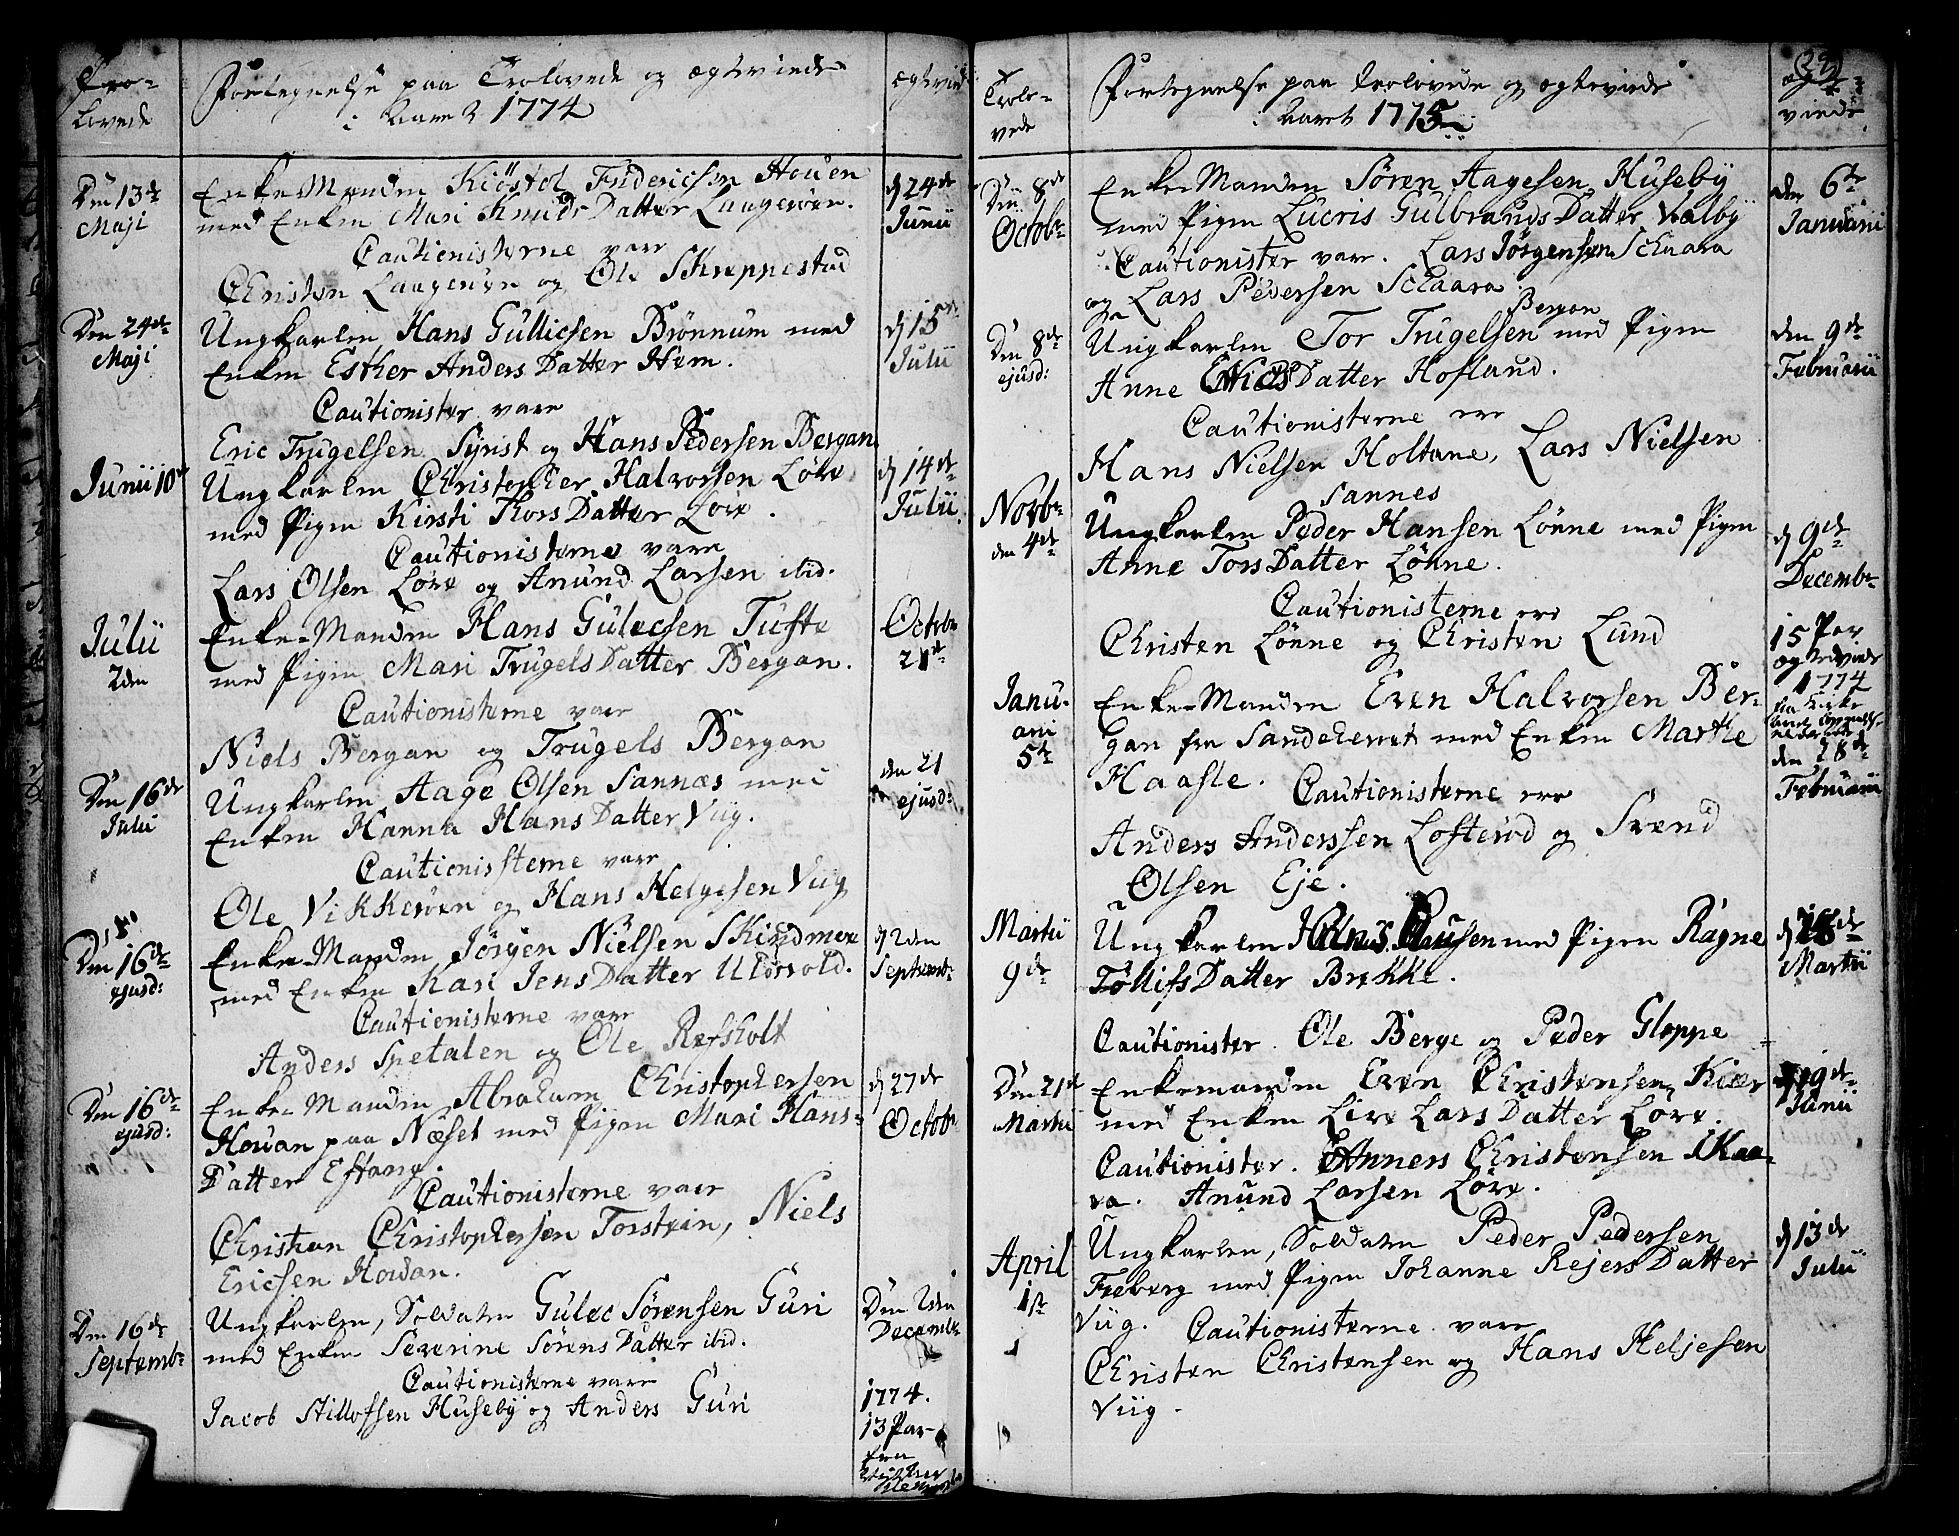 Tro-
lovede
Fortegnelse paa Trolovede og ægteviede
i Aaret 1774
ægtevied
Den 13de
Maji
Enke-Manden Kiöstol Fridericsen Houen
med Enken Mari KnudsDatter Laugerøen.
Cautionisterne vare
Christen Laugerøen og Ole Skreppestad
d 24de
Junii
Den 24de
Maji
Ungkarlen Hans Gullicsen Brønnum med
Enken Esther AndersDatter Hem.
Cautionister vare
Eric Trugelsen Synst og Hans Pedersen Bergan
d 15de
Julii
Junii 10de
Ungkarlen Christopher Halvorsen Löve
med Pigen Kirsti ThorsDatter Löve.
Cautionisterne vare
Lars Olsen Löve og Anund Larsen ibid.
d 14de
Julii
Julii
2den
Enke-Manden Hans Gulecsen Tufte
med Pigen Mari TrugelsDatter Bergan.
Cautionisterne vare
Niels Bergan og Trugels Bergan
Octobr
21de
Den 16de
Julii
Ungkarlen Aage Olsen Sannæs med
Enken Hanna HansDatter Viig.
Cautionisterne vare
Ole Vikkerøen og Hans Helgesen Viig
den 21
ejusd:
Den 16de
ejusd:
Enke-Manden Jørgen Nielsen Skindmoe
med Enken Kari JensDatter
Cautionisterne vare
Anders Spetalen og Ole Refsholt
d 2den
Septemb:
Den 16de
ejusd:
Enke-Manden Abraham Christophersen
Howan paa Næset med Pigen Mari Hans-
Datter Eftang.
Cautionisterne vare
Christian Christophersen Torstein, Niels
Ericsen Howan.
d 27de
Octob:
Den 16de
Septemb:
Ungkarlen, Soldaten Gulec Sørensen Guri
med Enken Severine SørensDatter ibid.
Cautionisterne vare
Jacob Stillofsen Huseby og Anders Guri
Den 2den
Decemb:
1774.
13 Par
fra
Trolo-
vede
Fortegnelse paa trolovede og ægteviede
i Aaret 1775
ægte-
viede
Den 8de
Octob:
Enke-Manden Søren Aagesen Huseby
med Pigen Lucris GulbrandsDatter Valby
Cautionister vare. Lars Jørgensen Schaara
og Lars Pedersen Schaara.
den 6te
Januarii
Den 8de
ejusd:
Bergan
Ungkarlen Tor Trugelsen med Pigen
Anne NielsDatter Hofland.
Cautionisterne ere
Hans Nielsen Holtane, Lars Nielsen
Sannes
den 9de
Februarii
Novb:
den 4de
Ungkarlen Peder Hansen Lönne med Pigen
Anne TorsDatter Lönne.
Cautionisterne ere
Christen Lönne og Christen Lund
d 9de
Decemb:
15 Par
ægteviede
1774
Janu-
arii
5te
Enke-Manden Even Halvorsen Ber-
gan fra Sandeherret med Enken Marthe
Haasle. Cautionisterne ere
Anders Anderssen Lofterød og Svend
Olsen Eje.
den 28de
Februarii
Martii
9de
Ungkarlen Hans Clausen med Pigen Ragne
TöllifsDatter Brekke.
Cautionister. Ole Berge og Peder Gloppe
Martii
Den 21de
Martii
Enkemanden Even Christensen Kier
med Enken Live LarsDatter Löve.
Cautionister. Anners Christensen Skaa-
ra. Anund Larsen Löve.
19de
Junii
April
1ste
Ungkarlen, Soldaten Peder Pedersen
Freberg med Pigen Johanne RejersDatter
Viig. Cautionisterne vare
Christen Christensen og Hans Heljesen
Viig.
d 13de
Julii